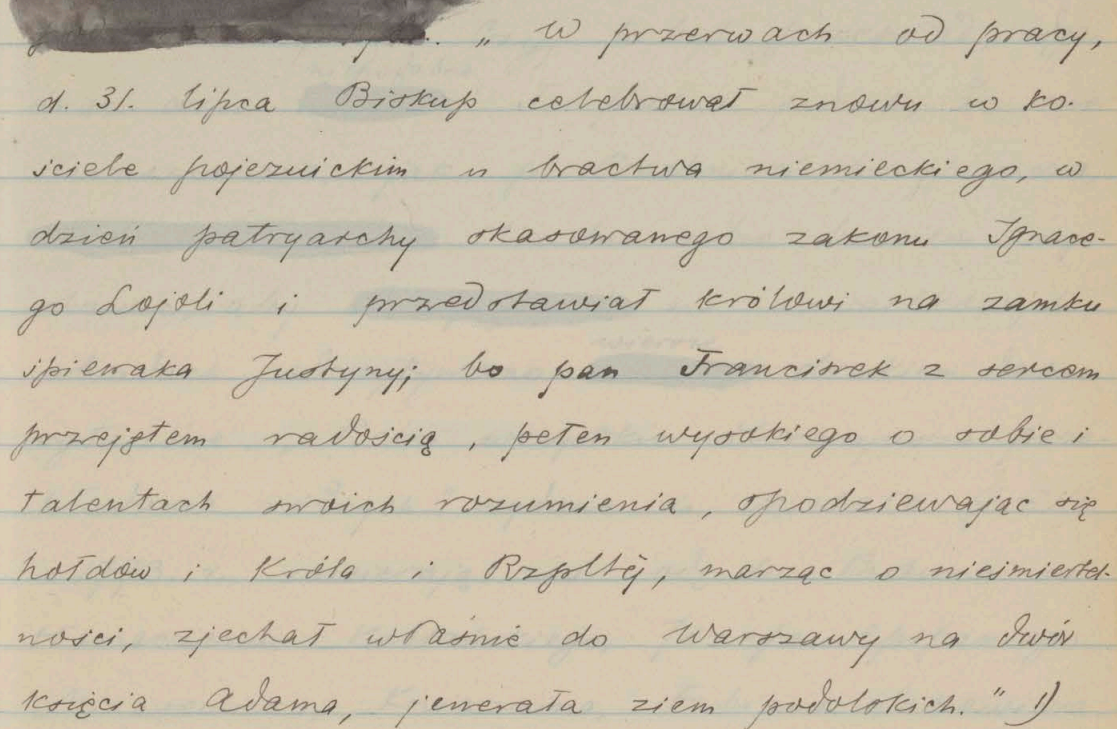 „ W przerwach od pracy,
d. 31. lipca Biskup celebrował znowu w ko-
ściele pojezuickim u bractwa niemieckiego, w
dzień patryarchy skasowanego zakonu Ignace-
go Lojoli i przedstawiał królowi na zamku
śpiewaka Justyny; bo pan Franciszek z sercem
przejętem radością, pełen wysokiego o sobie i
talentach swoich rozumienia, spodziewając się
hołdów i Króla i Rzpltéj, marząc o nieśmiertel-
ności, zjechał właśnie do Warszawy na dwór
księcia Adama, jenerała ziem podolskich." 1)